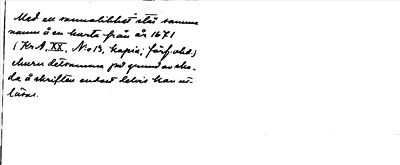 Med all sannolikhet står samma
namn å en karta från år 1671
(Ks A. XX. N:o 13, kopia; förf. okd.)
churu detsamma på grund av ska-
da å skriften endast delvis kan ut-
läsas.